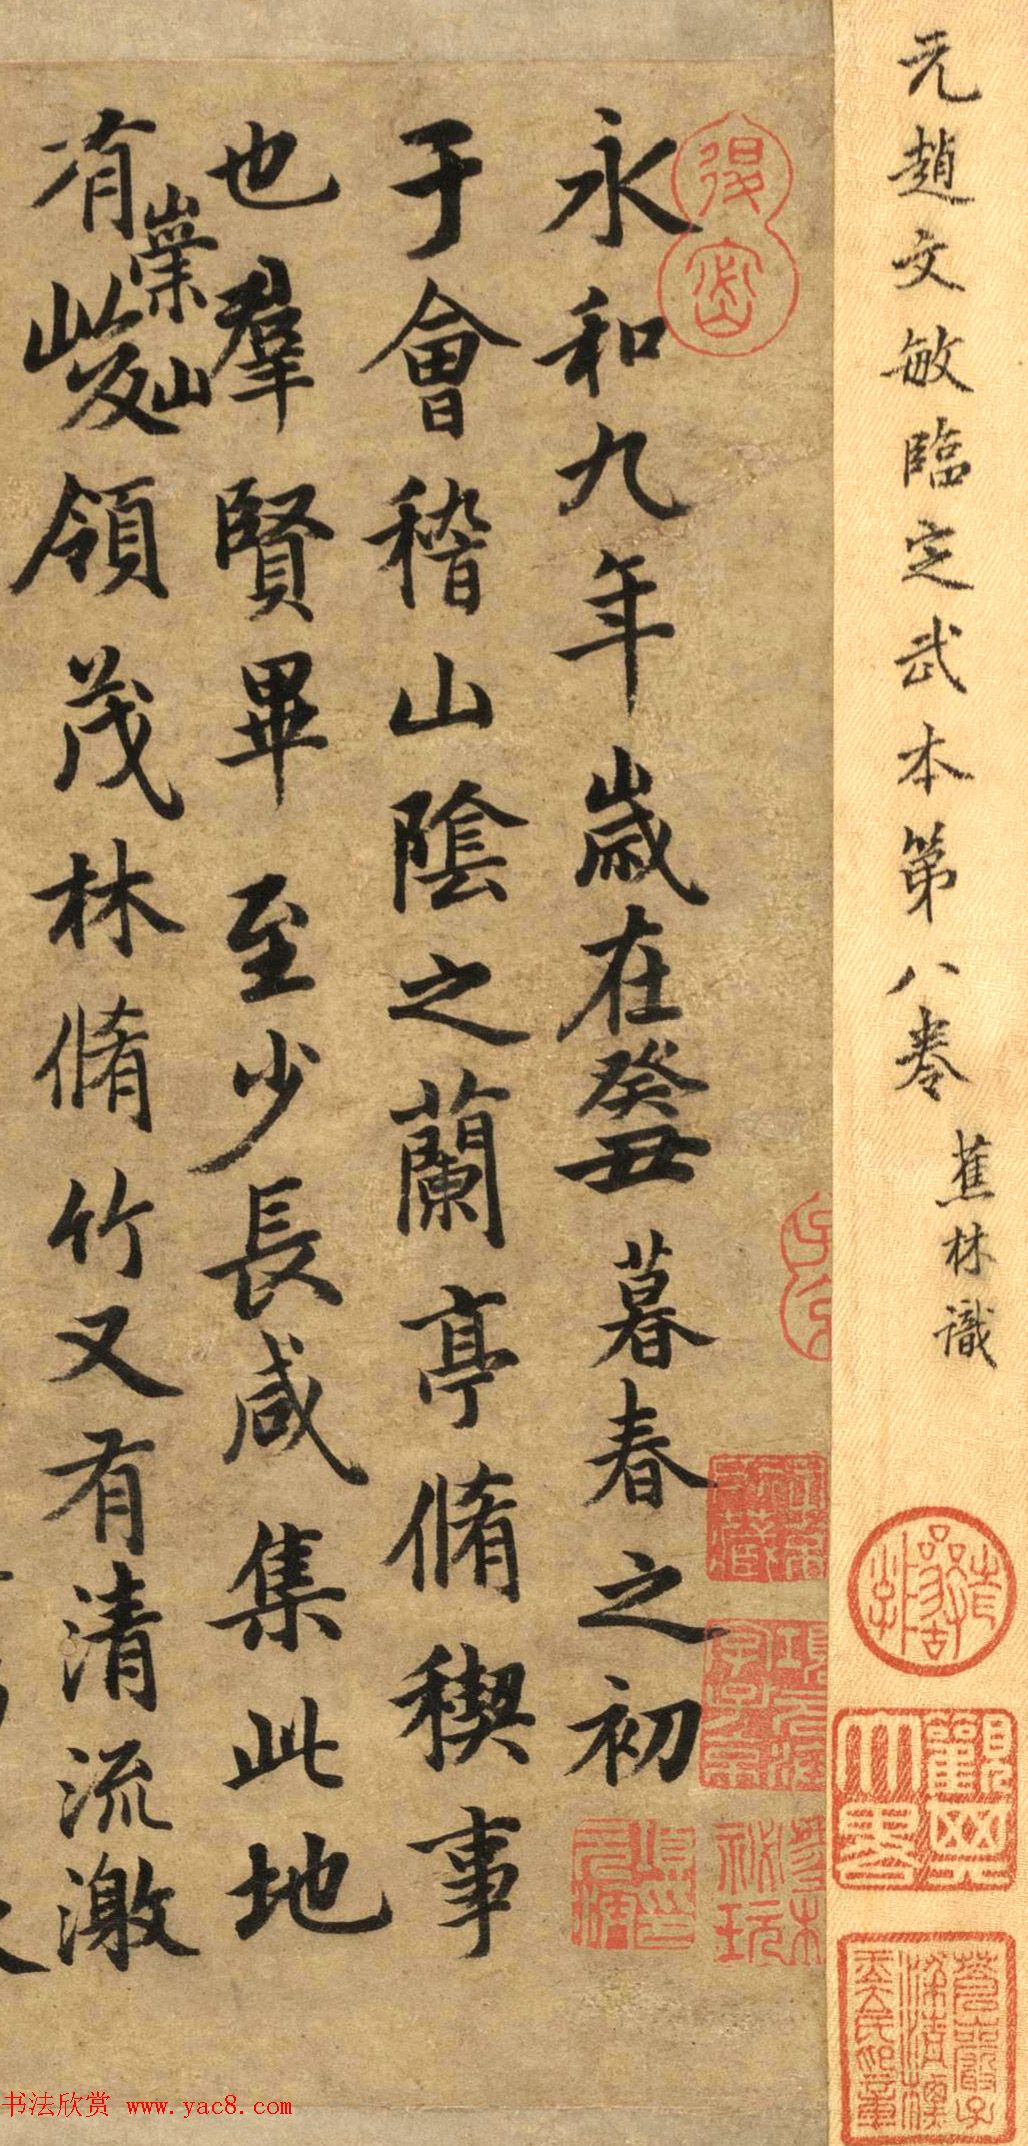 元趙文敏臨定武本第八卷
蕉林識
永和九年歲在癸丑暮春之初
于會稽山陰之蘭亭脩稧事
也羣賢畢至少長咸集此地
有崇山
峻領茂林脩竹又有清流激
书法欣赏 www.yac8.com